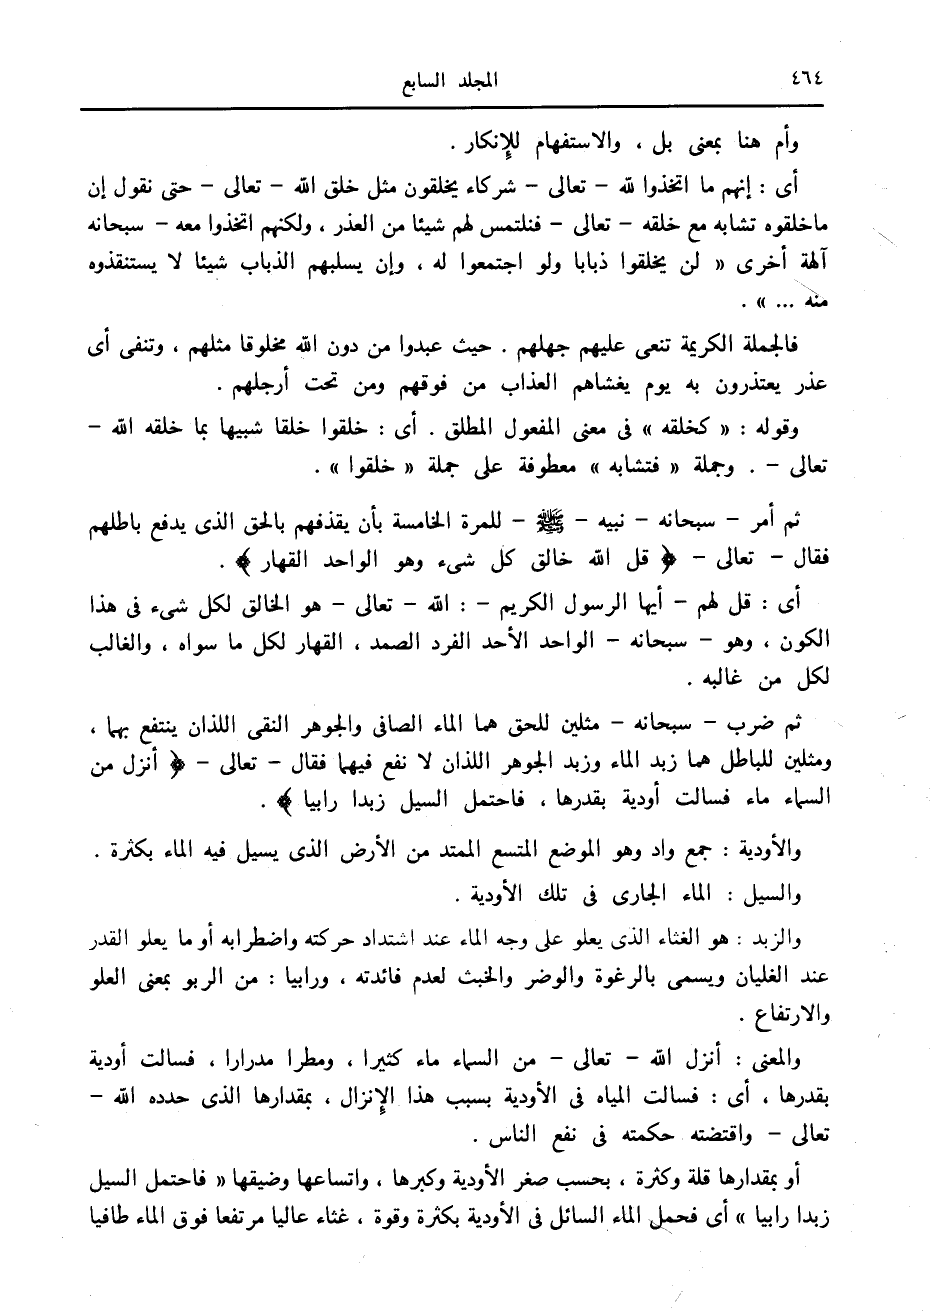 ٤٦٤
المجلد السابع
وأم هنا بمعنى بل ، والاستفهام للإنكار .
أى : إنهم ما اتخذوا لله – تعالى – شركاء يخلقون مثل خلق الله – تعالى – حتى نقول إن
ماخلقوه تشابه مع خلقه – تعالى – فنلتمس لهم شيئا من العذر ، ولكنهم اتخذوا معه – سبحانه
آلهة أخرى « لن يخلقوا ذبابا ولو اجتمعوا له ، وإن يسلبهم الذباب شيئا لا يستنقذوه
منه ... » .
فالجملة الكريمة تنعى عليهم جهلهم . حيث عبدوا من دون الله مخلوقا مثلهم ، وتنفى أى
عذر يعتذرون به يوم يغشاهم العذاب من فوقهم ومن تحت أرجلهم .
وقوله : « كخلقه » فى معنى المفعول المطلق . أى : خلقوا خلقا شبيها بما خلقه الله –
تعالى – . وجملة « فتشابه » معطوفة على جملة « خلقوا » .
ثم أمر – سبحانه – نبيه – ﷺ – للمرة الخامسة بأن يقذفهم بالحق الذى يدفع باطلهم
فقال – تعالى – ﴿ قل الله خالق كل شىء وهو الواحد القهار ﴾ .
أى : قل لهم – أيها الرسول الكريم – : الله – تعالى – هو الخالق لكل شىء فى هذا
الكون ، وهو – سبحانه – الواحد الأحد الفرد الصمد ، القهار لكل ما سواه ، والغالب
لكل من غالبه .
ثم ضرب – سبحانه – مثلين للحق هما الماء الصافى والجوهر النقى اللذان ينتفع بهما ،
ومثلين للباطل هما زبد الماء وزبد الجوهر اللذان لا نفع فيهما فقال – تعالى – ﴿ أنزل من
السماء ماء فسالت أودية بقدرها ، فاحتمل السيل زبدا رابيا ﴾ .
والأودية : جمع واد وهو الموضع المتسع الممتد من الأرض الذى يسيل فيه الماء بكثرة .
والسيل : الماء الجارى فى تلك الأودية .
والزبد : هو الغثاء الذى يعلو على وجه الماء عند اشتداد حركته واضطرابه أو ما يعلو القدر
عند الغليان ويسمى بالرغوة والوضر والخبث لعدم فائدته ، ورابيا : من الربو بمعنى العلو
والارتفاع .
والمعنى : أنزل الله – تعالى – من السماء ماء كثيرا ، ومطرا مدرارا ، فسالت أودية
بقدرها ، أى : فسالت المياه فى الأودية بسبب هذا الإنزال ، بمقدارها الذى حدده الله –
تعالى – واقتضته حكمته فى نفع الناس .
أو بمقدارها قلة وكثرة ، بحسب صغر الأودية وكبرها ، واتساعها وضيقها « فاحتمل السيل
زبدا رابيا » أى فحمل الماء السائل فى الأودية بكثرة وقوة ، غثاء عاليا مرتفعا فوق الماء طافيا